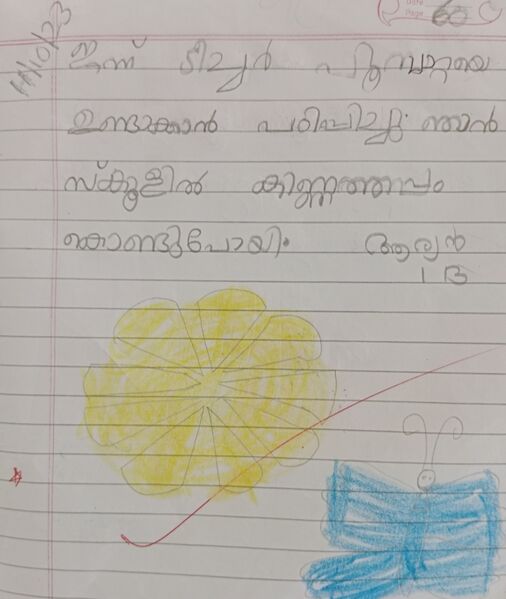 Date
Page 60
11/10/23
ഇന്ന് ടീച്ചർ പൂമ്പാറ്റയെ
ഉണ്ടാക്കാൻ പഠിപ്പിച്ചു. ഞാൻ
സ്കൂളിൽ കിണ്ണത്തപ്പം
കൊണ്ടുപോയി. ആര്യൻ
1 B